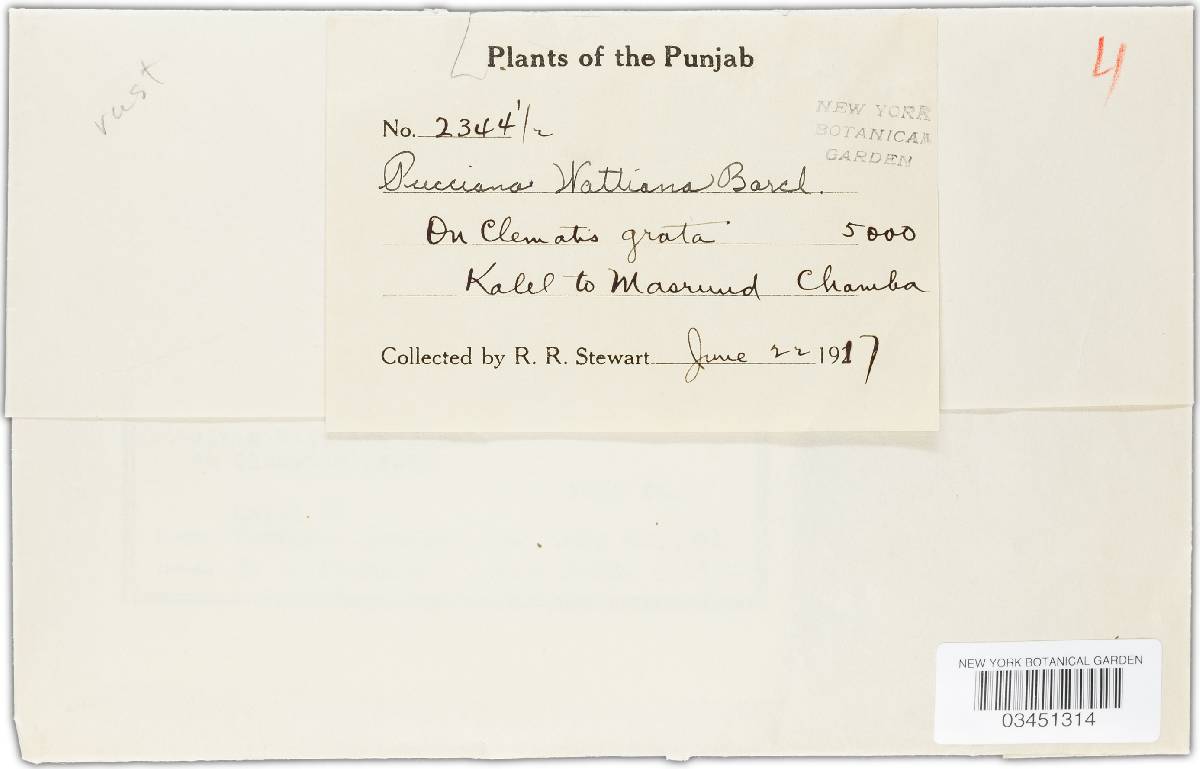 rust
Plants of the Punjab
4
No. 2344 1/2
NEW YORK
BOTANICAL
GARDEN
Pucciana Wattiana Barcl.
On Clematis grata 5000
Kalel to Masrund Chamba
Collected by R. R. Stewart June 22 1917
NEW YORK BOTANICAL GARDEN
03451314